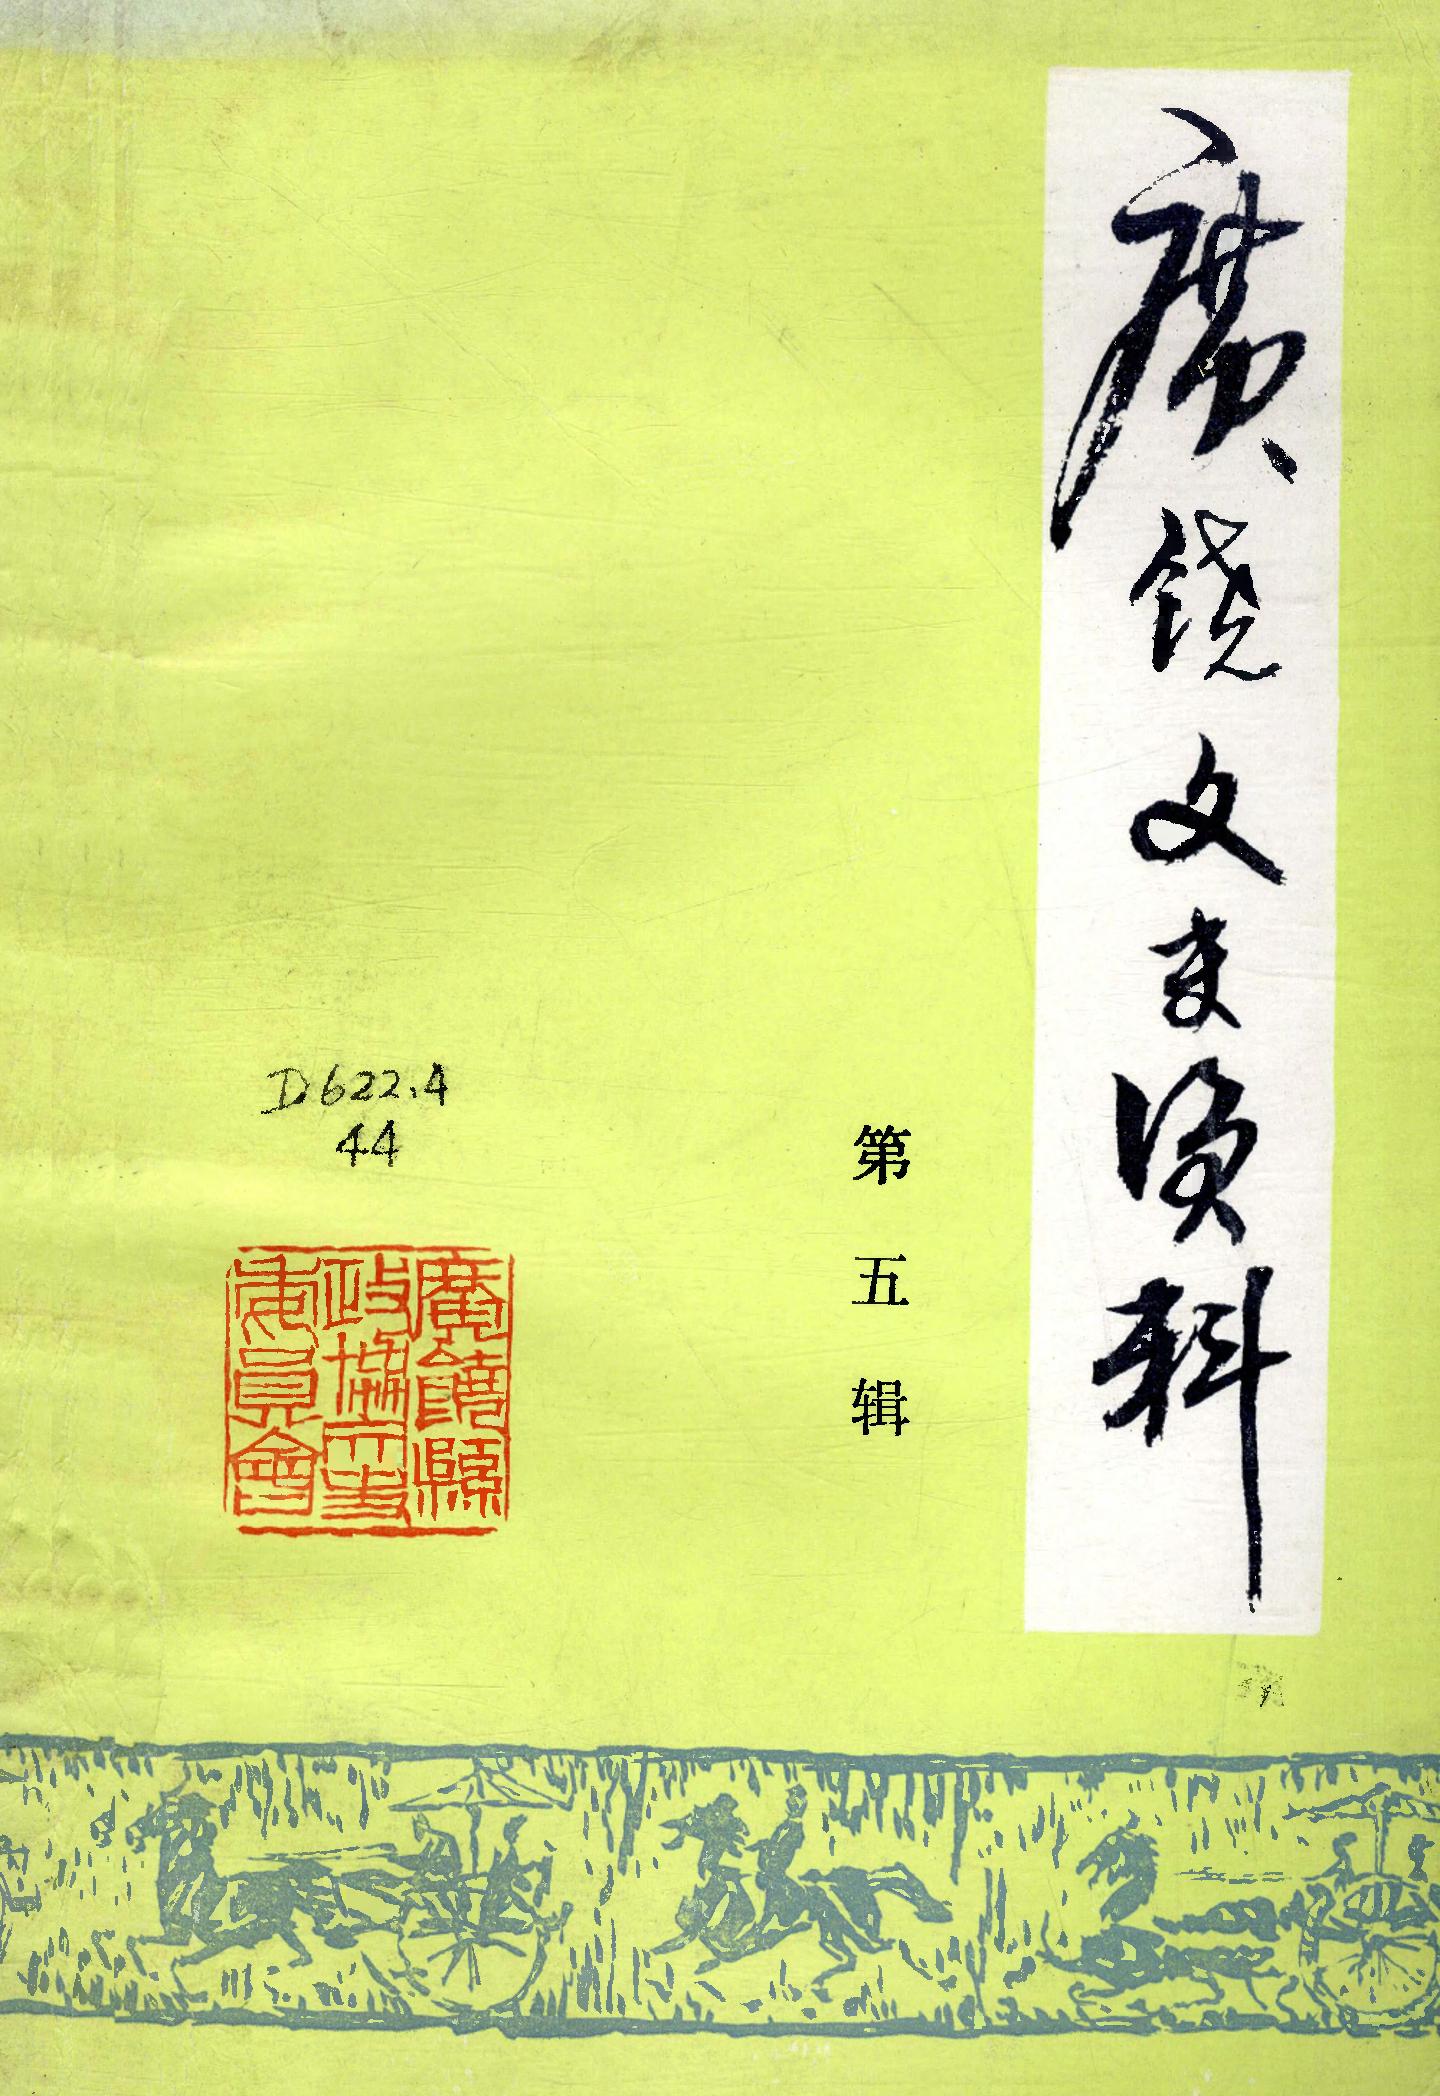 廣饶文史资料
第五辑
D622.4
44
廣饒縣
政協文史
委員會